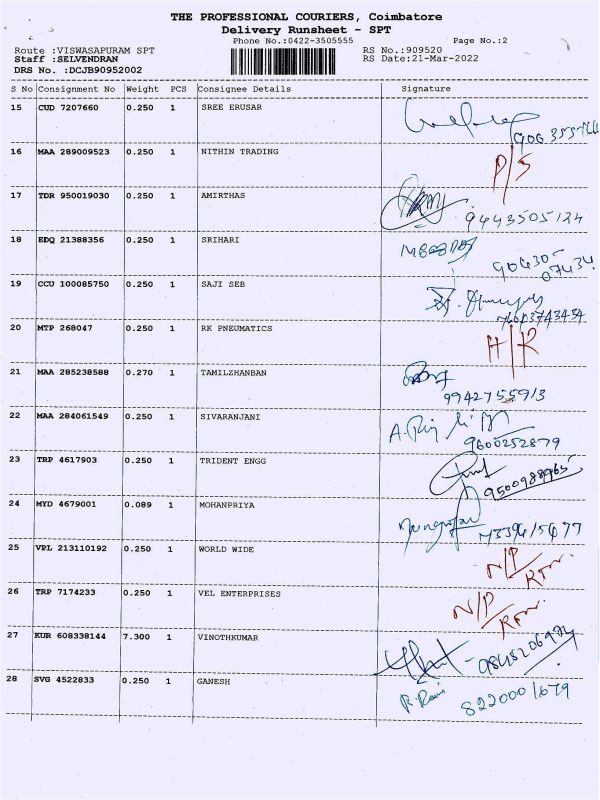 THE PROFESSIONAL COURIERS, Coimbatore
Delivery Runsheet - SPT
Phone No.:0422-3505555 Page No.:2
Route :VISWASAPURAM SPT RS No.:909520
Staff :SELVENDRAN RS Date:21-Mar-2022
DRS No. :DCJB90952002
S No Consignment No Weight PCS Consignee Details Signature
15 CUD 7207660 0.250 1 SREE ERUSAR
16 MAA 289009523 0.250 1 NITHIN TRADING P/S
17 TDR 950019030 0.250 1 AMIRTHAS 9443505124
18 EDQ 21388356 0.250 1 SRIHARI 90430-
07434.
19 CCU 100085750 0.250 1 SAJI SEB
20 MTP 268047 0.250 1 RK PNEUMATICS H/R
21 MAA 285238588 0.270 1 TAMILZHANBAN 9942755913
22 MAA 284061549 0.250 1 SIVARANJANI 9600252879
23 TRP 4617903 0.250 1 TRIDENT ENGG 9500988965
24 MYD 4679001 0.089 1 MOHANPRIYA
25 VPL 213110192 0.250 1 WORLD WIDE N/P
RTN.
26 TRP 7174233 0.250 1 VEL ENTERPRISES N/P
RTN.
27 KUR 608338144 7.300 1 VINOTHKUMAR
28 SVG 4522833 0.250 1 GANESH 8220001679